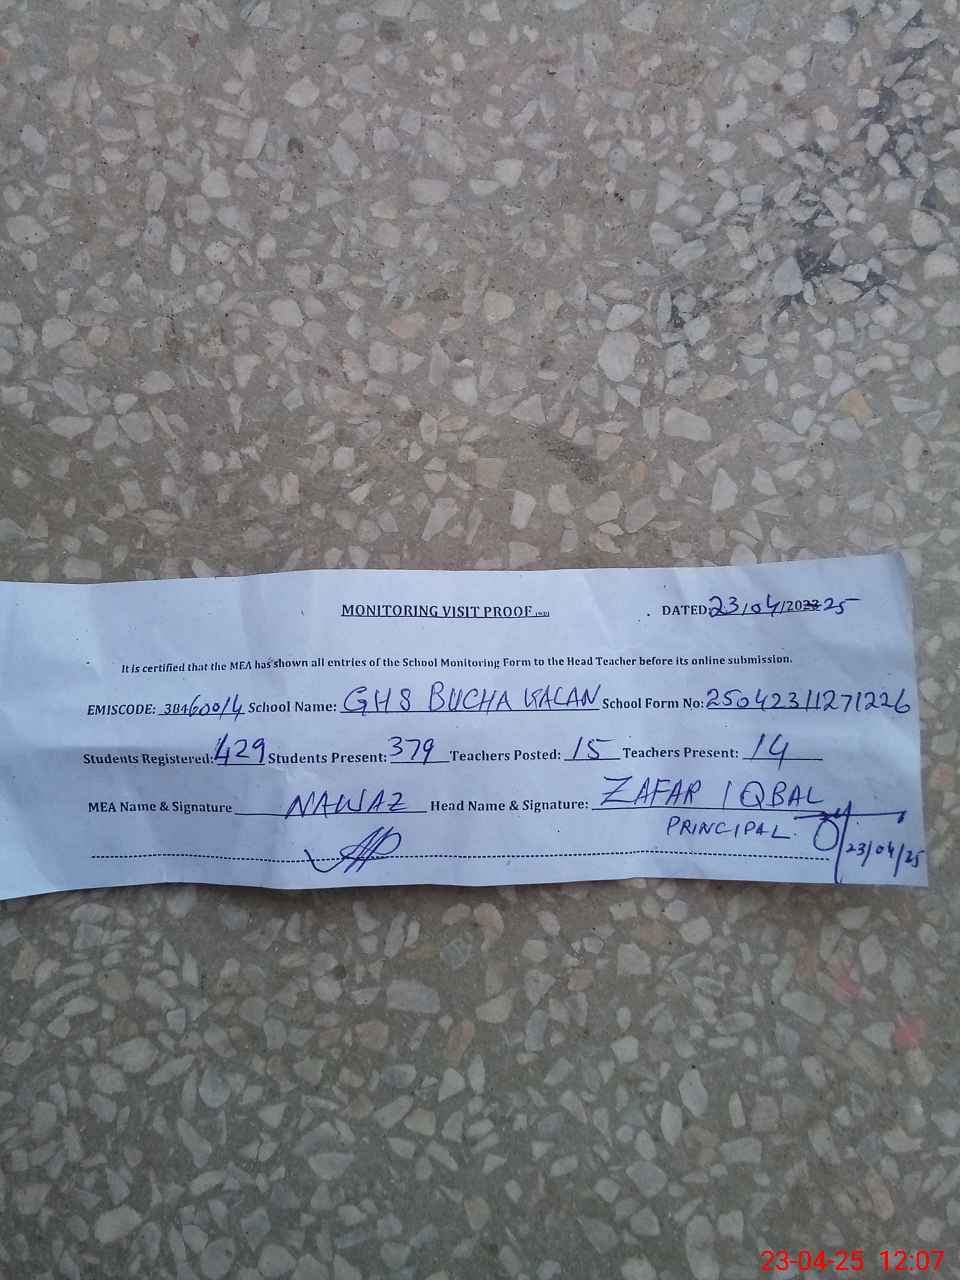 MONITORING VISIT PROOF
DATED 23/04/2023 25
It is certified that the MEA has shown all entries of the School Monitoring Form to the Head Teacher before its online submission.
EMISCODE: 38460014 School Name: GHS BUCHA KALAN School Form No: 25042311271226
Students Registered: 429 Students Present: 379 Teachers Posted: 15 Teachers Present: 14
MEA Name & Signature NAWAZ Head Name & Signature: ZAFAR IQBAL
PRINCIPAL.
23/04/25
23-04-25 12:07